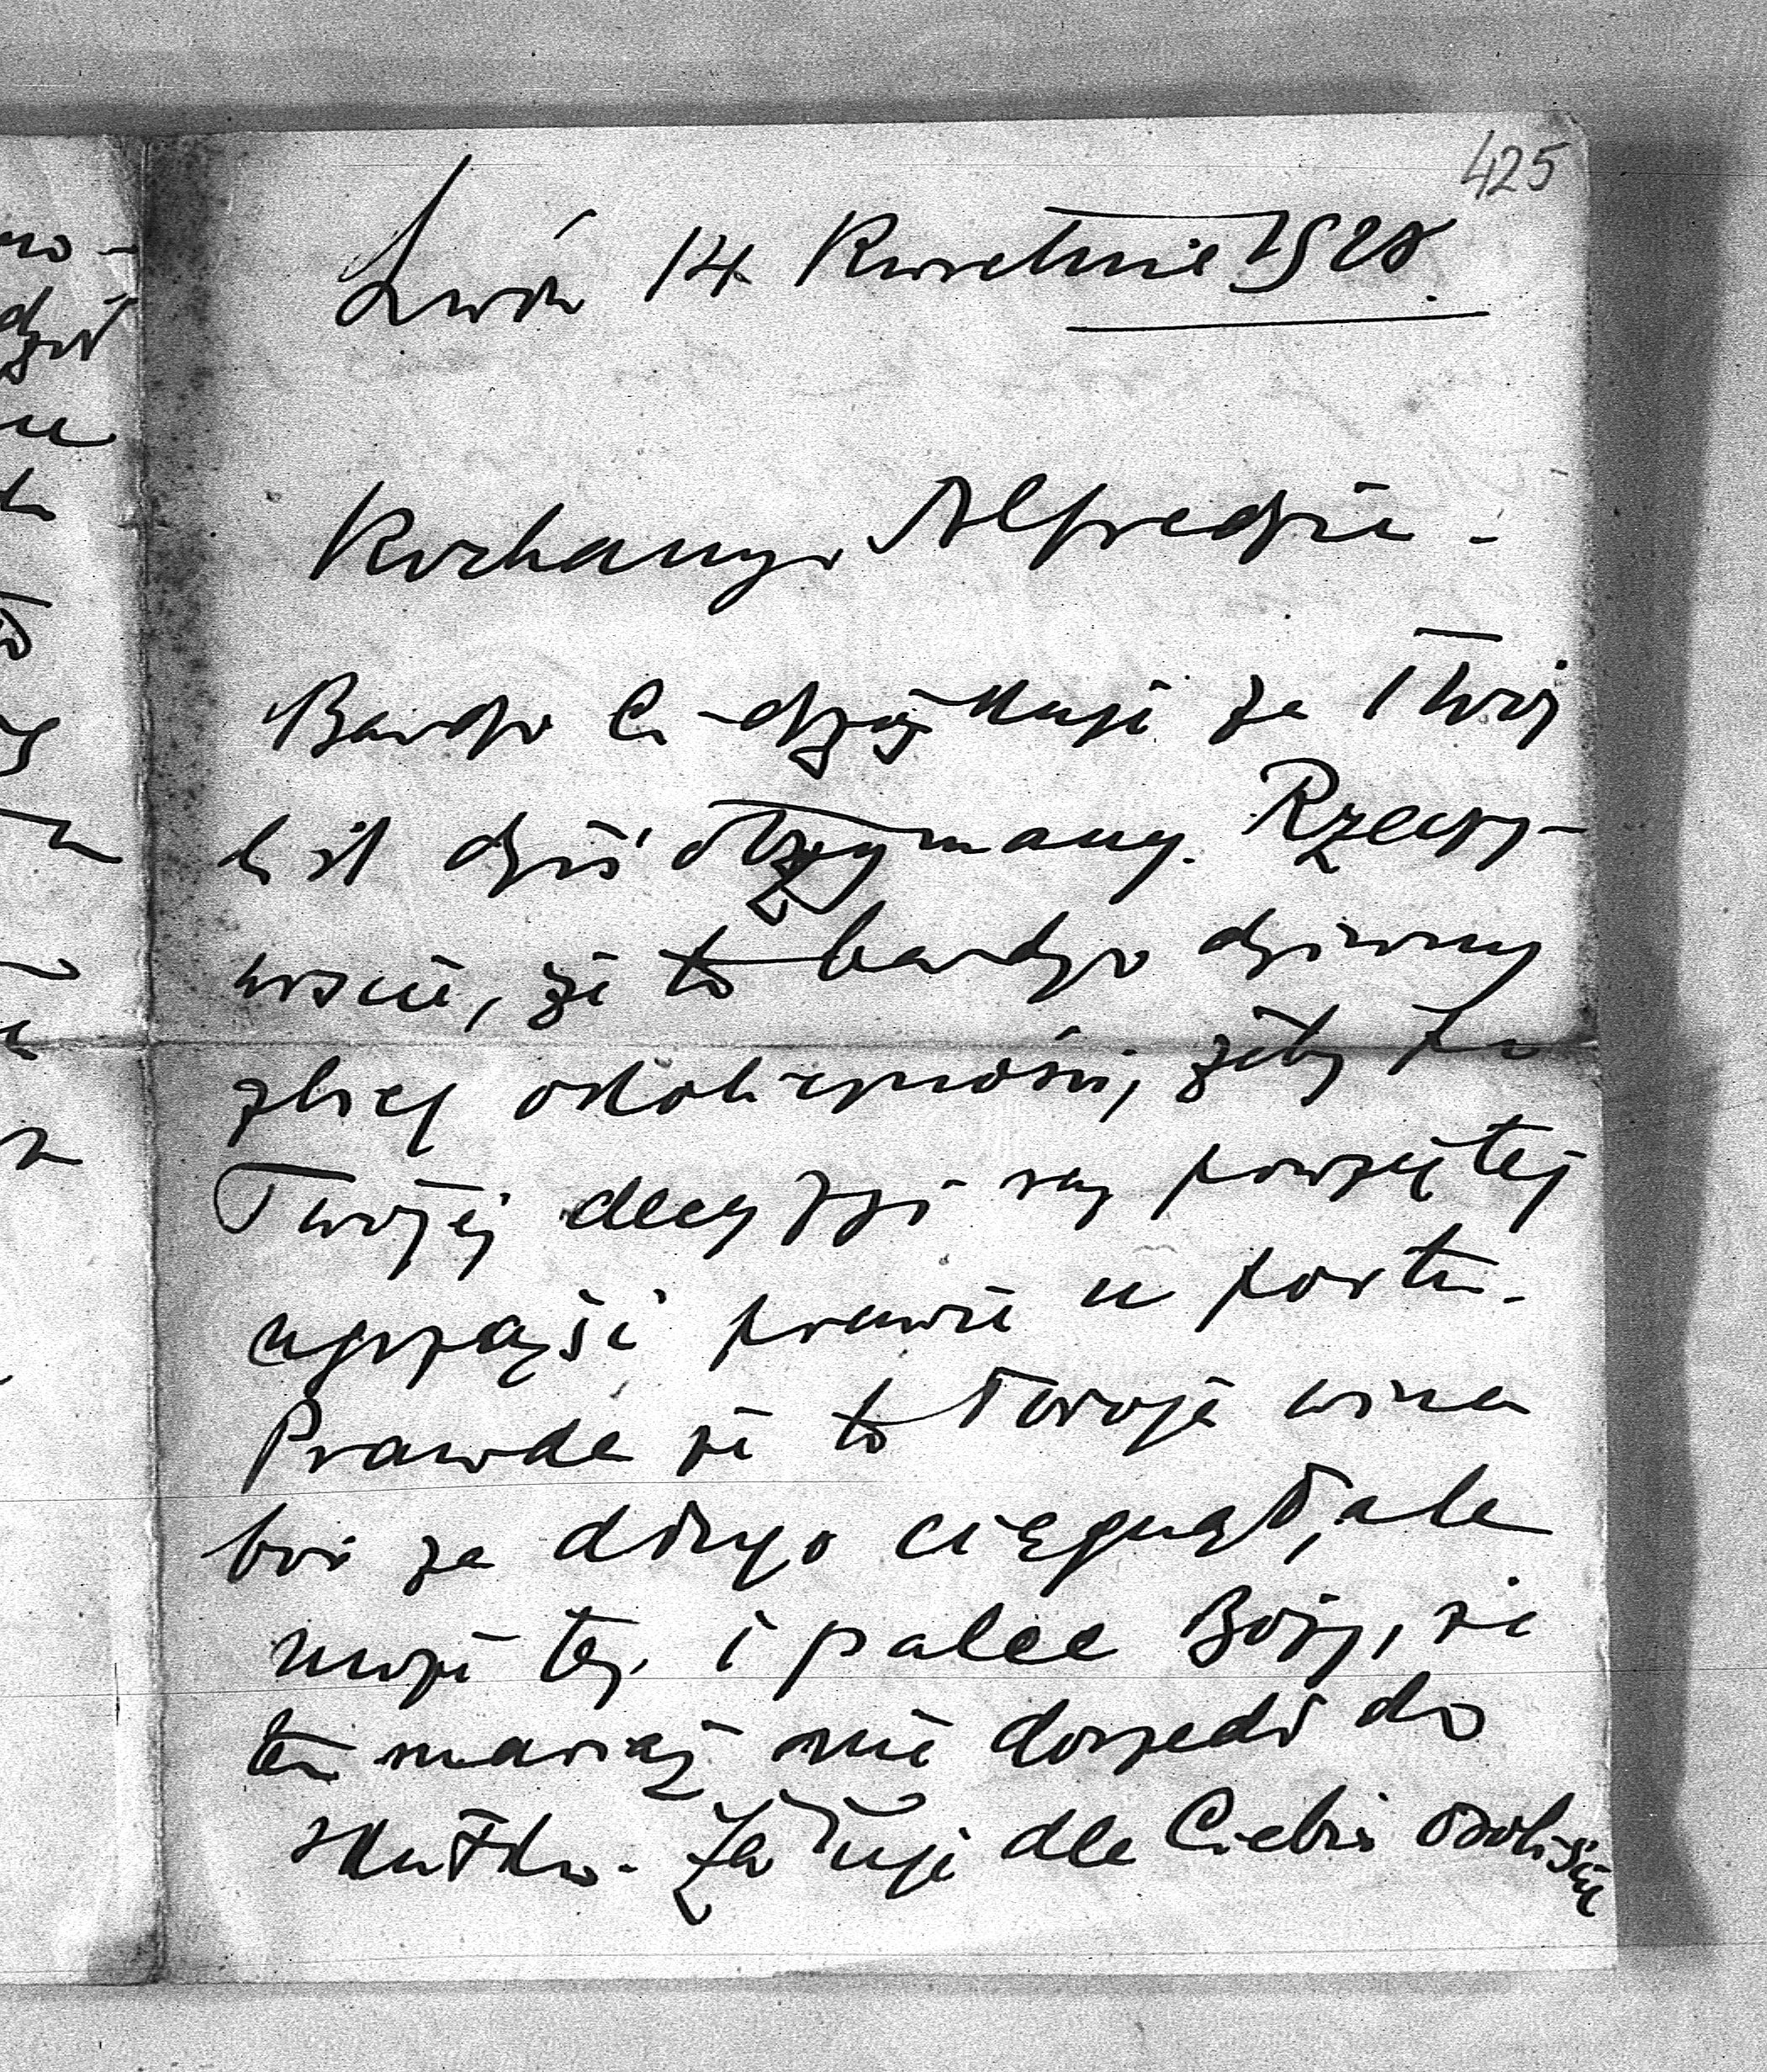 425
Lwów 14 Kwietnia 1928.
Kochany Alfredzie -
Bardzo Ci dziękuję za Twój
list dziś otrzymany. Rzeczy-
wiście, że to bardzo dziwny
zbieg okoliczności, żeby po
Twojej decyzji raz powziętej
ugrząść prawie u portu.
Prawda że to Twoja wina
boś za długo ciągnął, ale
może też i palec Boży, że
ten mariaż nie doszedł do
skutku. Żałuję dla Ciebie osobiście